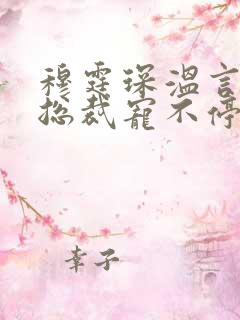 穆霆琛温言
总裁宠不停
幸子